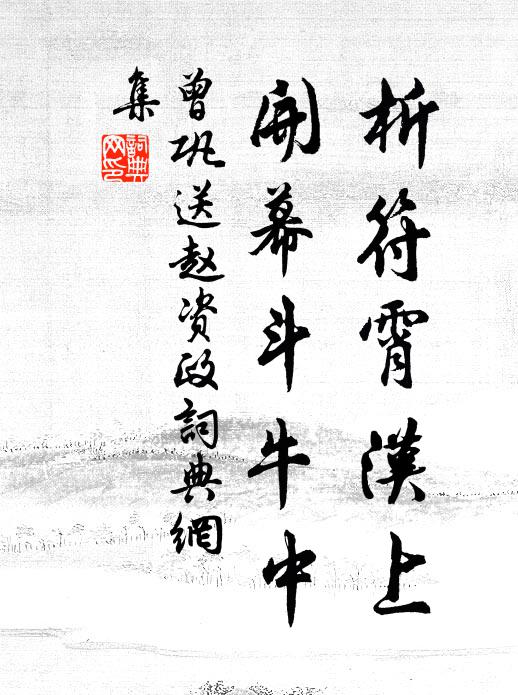 析符霄漢上
開幕斗牛中
曾巩送赵资政詞典網
集
詞典
网印